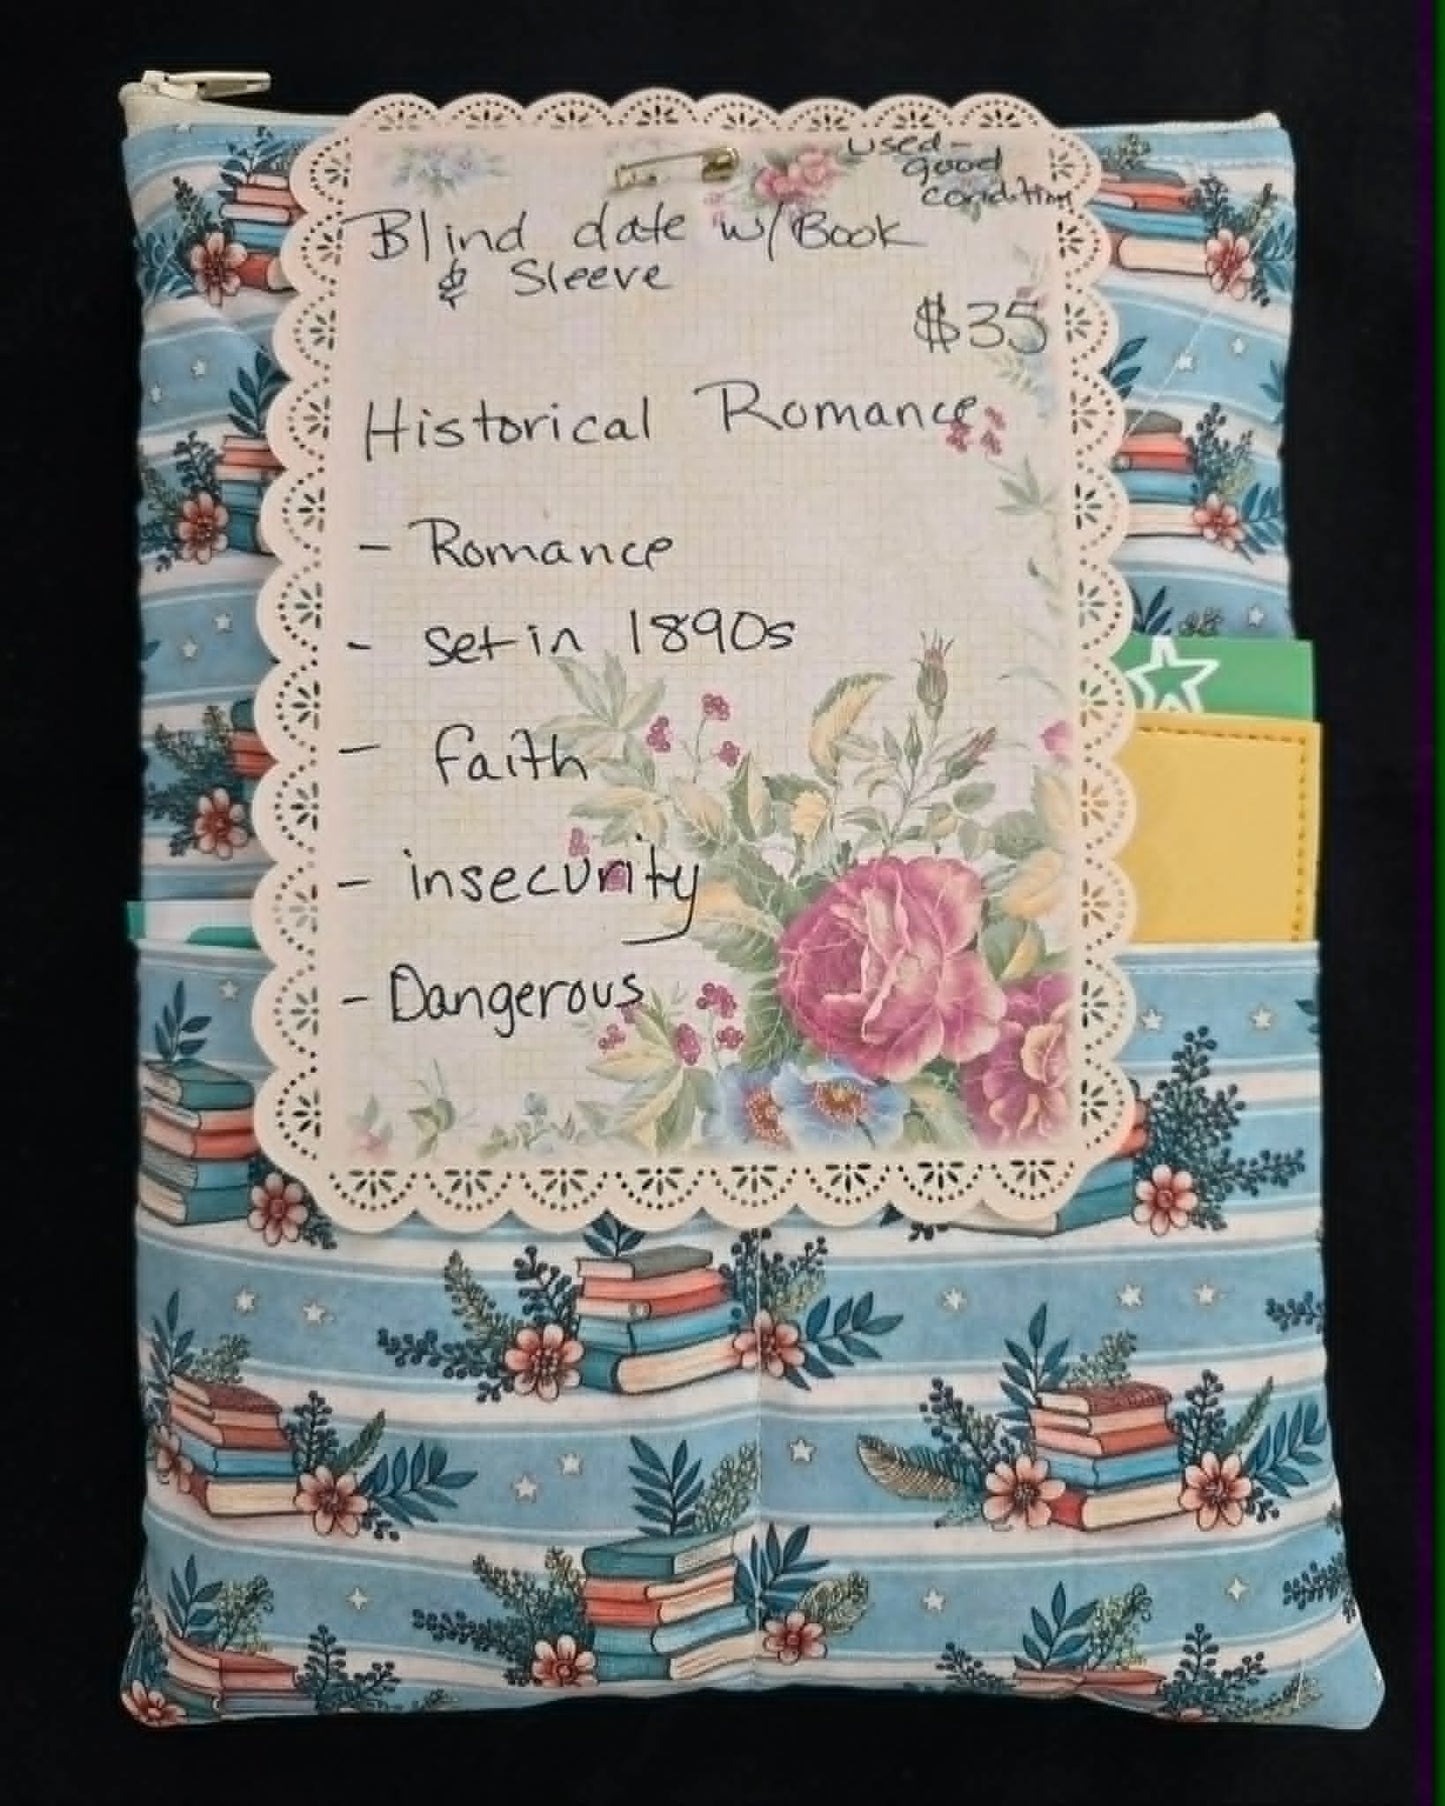 used-
good
condition
Blind date w/ Book
& Sleeve
$35
Historical Romance
- Romance
- set in 1890s
- Faith
- insecurity
- Dangerous